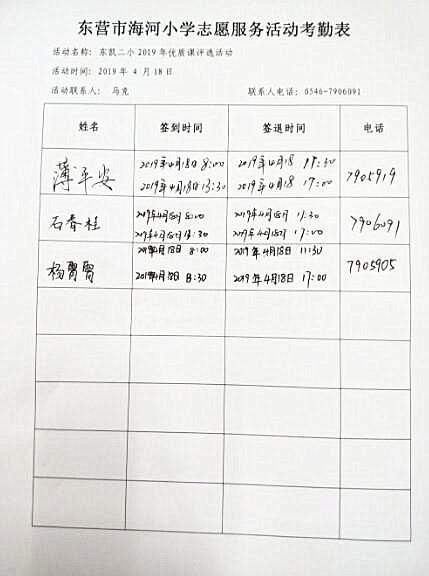 东营市海河小学志愿服务活动考勤表
活动名称：东凯二小 2019 年优质课评选活动
活动时间：2019 年 4 月 18 日
活动联系人： 马克 联系人电话：0546-7906091
姓名 签到时间 签退时间 电话
薄平安 2019年4月18日 8:00 2019年4月18 11:30 7905919
2019年4月18日 13:30 2019年4月18 17:00
石春桂 2019年4月18日 8:00 2019年4月18日 11:30 7906091
2019年4月18日 13:30 2019年4月18日 17:00
杨 2019年4月18日 8:00 2019年4月18日 11:30 7905905
2019年4月18日 2019年4月18日 17:00